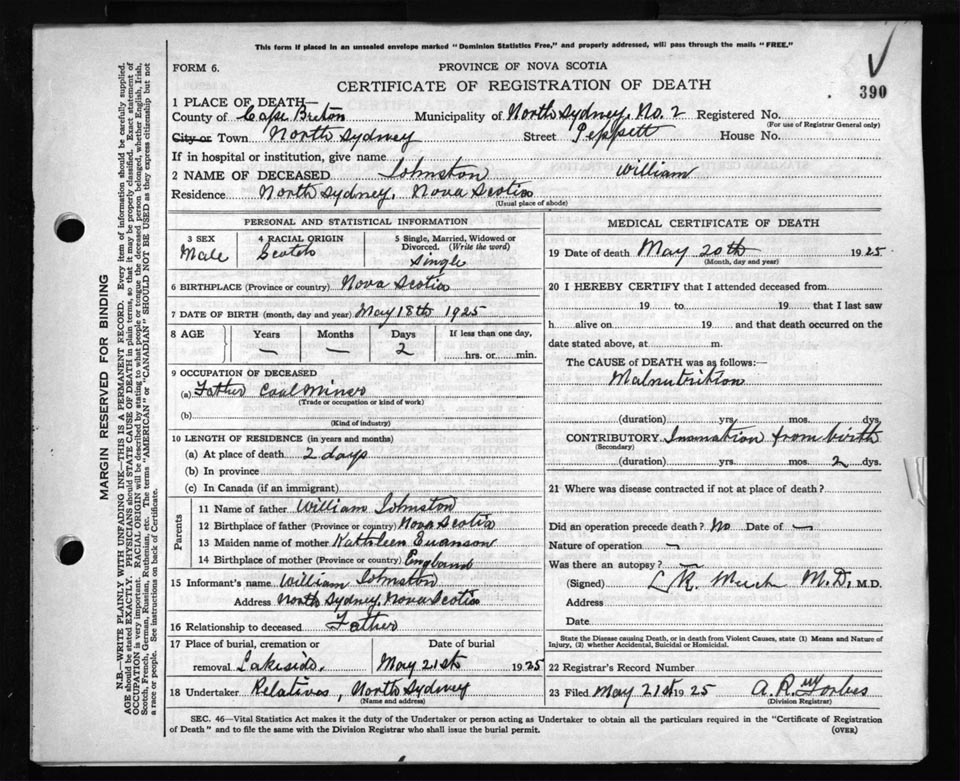 This form if placed in an unsealed envelope marked "Dominion Statistics Free," and properly addressed, will pass through the mails "FREE."
FORM 6.
PROVINCE OF NOVA SCOTIA
CERTIFICATE OF REGISTRATION OF DEATH
390
1 PLACE OF DEATH—
County of Cape Breton Municipality of North Sydney, No. 2 Registered No.
(For use of Registrar General only)
City or Town North Sydney Street Peppett House No.
If in hospital or institution, give name
2 NAME OF DECEASED Johnston William
Residence North Sydney, Nova Scotia
(Usual place of abode)
PERSONAL AND STATISTICAL INFORMATION
3 SEX Male
4 RACIAL ORIGIN Scotch
5 Single, Married, Widowed or Divorced. (Write the word) Single
6 BIRTHPLACE (Province or country) Nova Scotia
7 DATE OF BIRTH (month, day and year) May 18th 1925
8 AGE Years Months Days If less than one day,
— — 2 hrs. or min.
9 OCCUPATION OF DECEASED
(a) Father Coal Miner
(Trade or occupation or kind of work)
(b)
(Kind of industry)
10 LENGTH OF RESIDENCE (in years and months)
(a) At place of death 2 days
(b) In province
(c) In Canada (if an immigrant)
Parents
11 Name of father William Johnston
12 Birthplace of father (Province or country) Nova Scotia
13 Maiden name of mother Kathleen Swanson
14 Birthplace of mother (Province or Country) England
15 Informant's name William Johnston
Address North Sydney, Nova Scotia
16 Relationship to deceased Father
17 Place of burial, cremation or removal Lakeside. Date of burial May 21st 1925
18 Undertaker Relatives, North Sydney
(Name and address)
MEDICAL CERTIFICATE OF DEATH
19 Date of death May 20th 1925
(Month, day and year)
20 I HEREBY CERTIFY that I attended deceased from
19 to 19 that I last saw
h alive on 19 and that death occurred on the
date stated above, at m.
The CAUSE of DEATH was as follows:—
Malnutrition
(duration) yrs. mos. dys.
CONTRIBUTORY Inanation from birth
(Secondary)
(duration) yrs. mos. 2 dys.
21 Where was disease contracted if not at place of death?
Did an operation precede death? No Date of —
Nature of operation —
Was there an autopsy? —
(Signed) L. R. M.D. M.D.
Address
Date
State the Disease causing Death, or in death from Violent Causes, state (1) Means and Nature of
Injury, (2) whether Accidental, Suicidal or Homicidal.
22 Registrar's Record Number
23 Filed May 21st 1925 A. R. Forbes
(Division Registrar)
SEC. 46—Vital Statistics Act makes it the duty of the Undertaker or person acting as Undertaker to obtain all the particulars required in the "Certificate of Registration
of Death" and to file the same with the Division Registrar who shall issue the burial permit. (OVER)
MARGIN RESERVED FOR BINDING
N.B.—WRITE PLAINLY WITH UNFADING INK—THIS IS A PERMANENT RECORD. Every item of information should be carefully supplied.
AGE should be stated EXACTLY. PHYSICIANS should STATE CAUSE OF DEATH in plain terms, so that it may be properly classified. Exact statement of
OCCUPATION is very important. RACIAL ORIGIN will be described by stating to what people or tongue the deceased person belonged, whether English, Irish,
Scotch, French, German, Russian, Ruthenian, etc. The terms "AMERICAN" or "CANADIAN" SHOULD NOT BE USED as they express citizenship but not
a race or people. See instructions on back of Certificate.